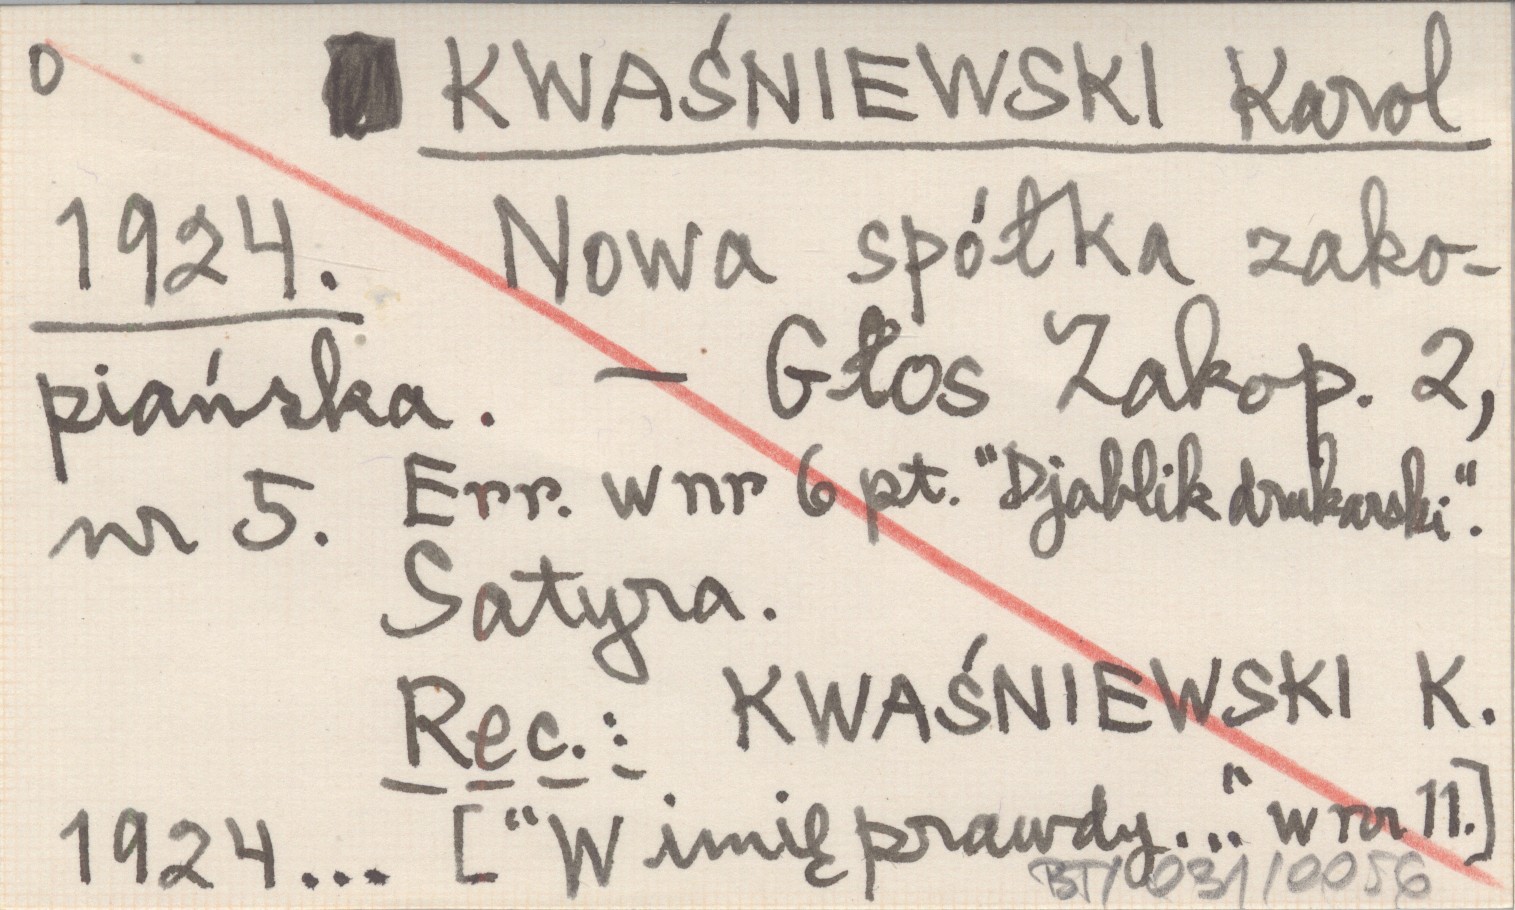 0 KWAŚNIEWSKI Karol
1924. Nowa spółka zako-
piańska. — Głos Zakop. 2,
nr 5. Err. w nr 6 pt. "Djablik drukarski".
Satyra.
Rec.: KWAŚNIEWSKI K.
1924... ["W imię prawdy..." w nr 11.]
BT/031/0056